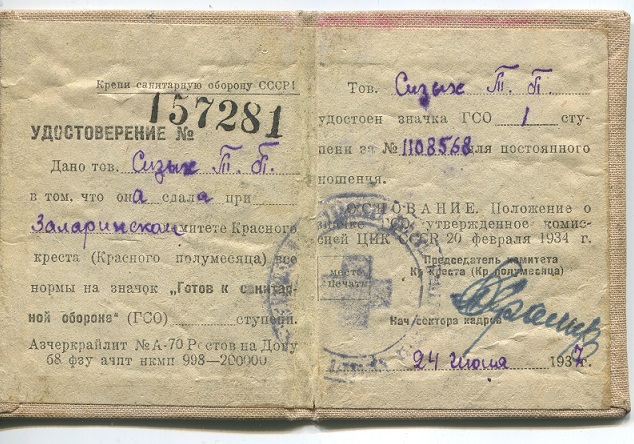 Крепи санитарную оборону СССР!
157281
УДОСТОВЕРЕНИЕ №
Дано тов. Сизых Т. П.
в том, что она сдала при
Заларинском митете Красного
креста (Красного полумесяца) все
нормы на значок „Готов к санитар-
ной обороне" (ГСО) ступени.
Азчеркрайлит № А-70 Ростов на Дону
68 фзу ачпт нкмп 998—200000
Тов. Сизых Т. П.
удостоен значка ГСО 1 сту-
пени за № 1108568 для постоянного
ношения.
ОСНОВАНИЕ. Положение о
значке утвержденное комис-
сией ЦИК СССР 20 февраля 1934 г.
Председатель комитета
Кр Креста (Кр полумесяца)
место
печати
Нач сектора кадров
24 июня 1937г.